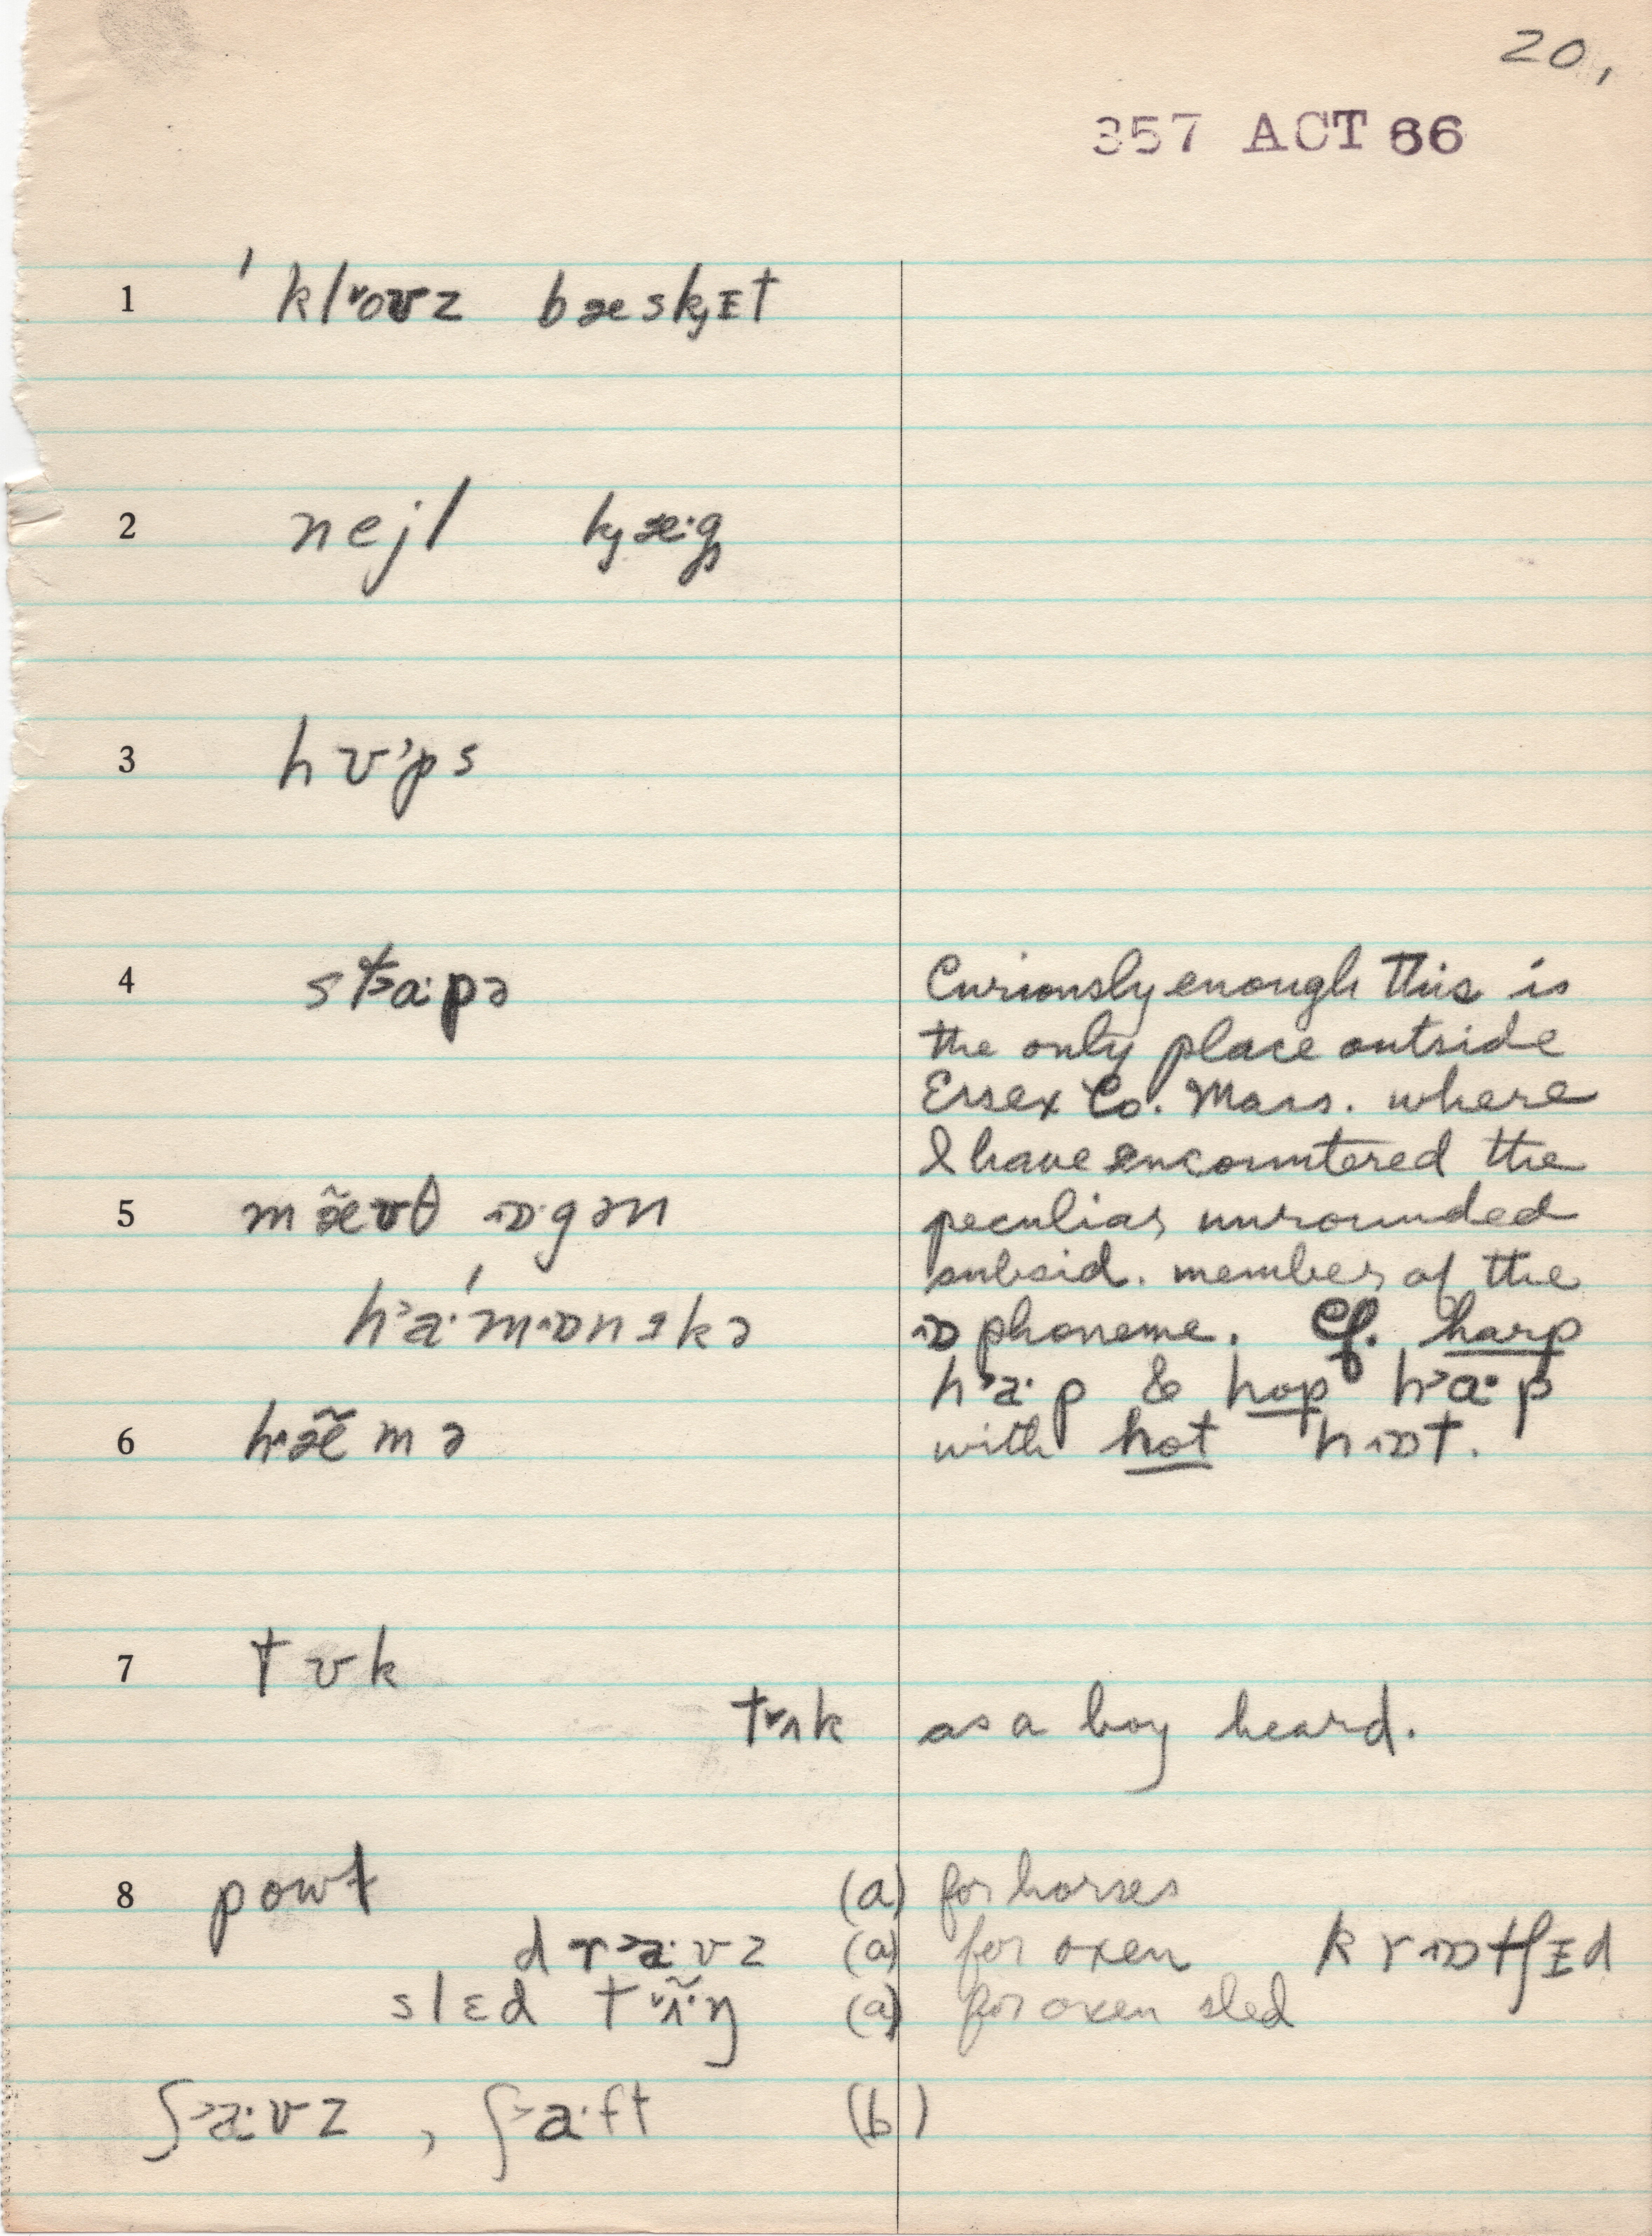 20,
357 ACT 66
1 ˈkl˅oʊz bæskj̩ɪt
2 nejl kj̩æ·g
3 hʊ˃ps
4 st˃a·pə
Curiously enough this is
the only place outside
Essex Co. Mass. where
I have encountered the
5 mæ̃ʊθ ɒ·gən
peculiar unrounded
subsid. member of the
h˃a·ˈmɒnɪkə
ɒ phoneme. Cf. harp
h˃a·p & hop h˃a·p
6 hæ̃mə
with hot hɒt.
7 tʊk
t˅ʌk as a boy heard.
8 powɫ (a) for horses
dr˃a·vz (a) for oxen krɒtʃɪd
slɛd t˅ʌ̃·ŋ (a) for oxen sled
ʃ˃a·vz , ʃ˃a·ft (b)